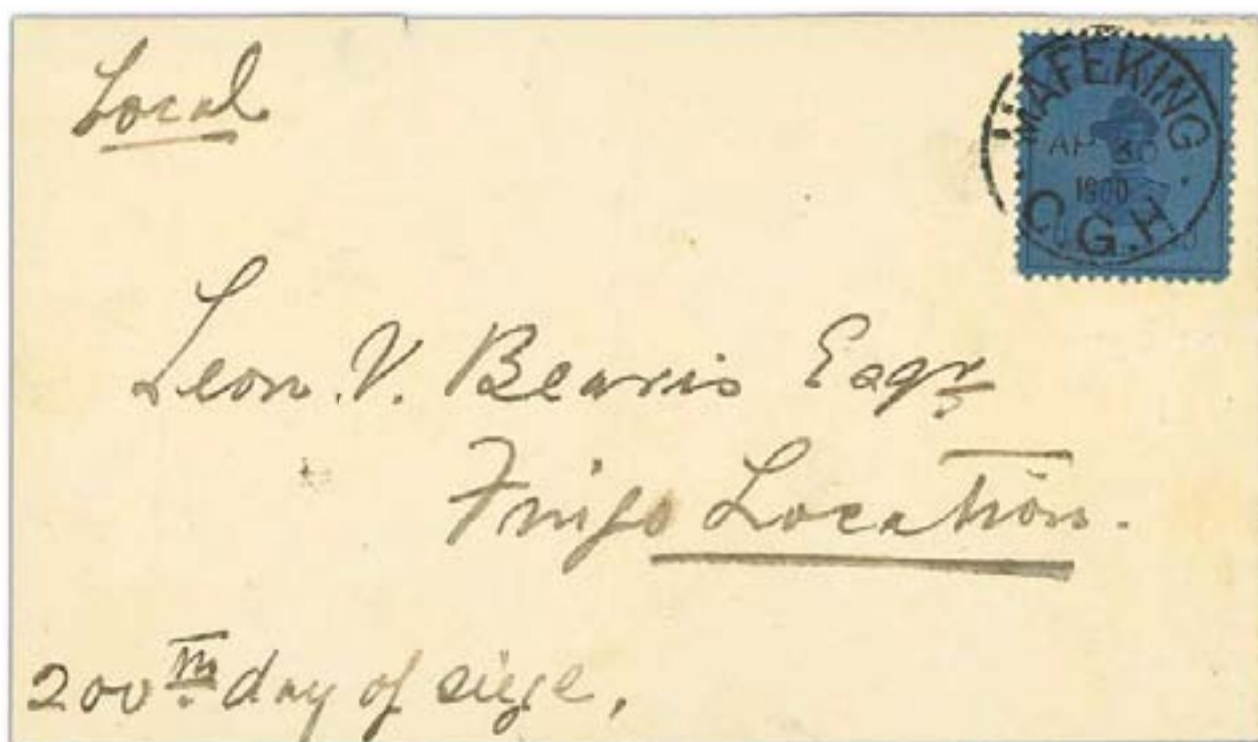 Local
MAFEKING
AP 30
1900
C.G.H
Leon. V. Bearis Esqr
Fingo Location.
200th day of siege,